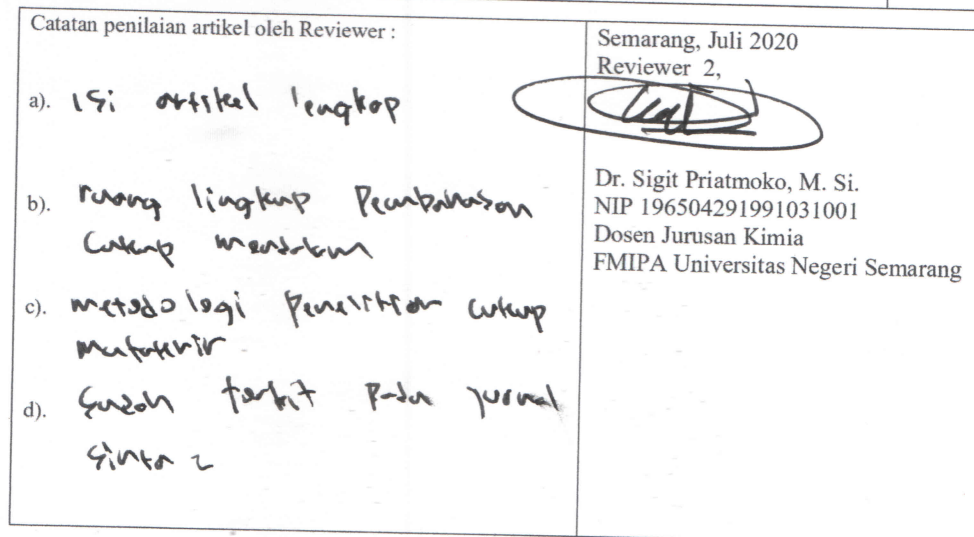 Catatan penilaian artikel oleh Reviewer :
a). isi artikel lengkap
b). ruang lingkup Pembahasan
cukup mendalam
c). metodologi Penelitian cukup
mutakhir
d). Sudah terbit pada jurnal
Sinta 2
Semarang, Juli 2020
Reviewer 2,
Dr. Sigit Priatmoko, M. Si.
NIP 196504291991031001
Dosen Jurusan Kimia
FMIPA Universitas Negeri Semarang